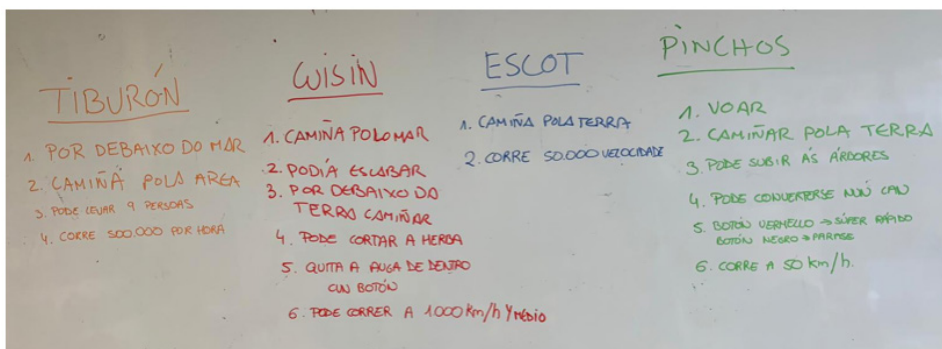 TIBURÓN
1. POR DEBAIXO DO MAR
2. CAMIÑA POLA AREA
3. PODE LEVAR 9 PERSOAS
4. CORRE 500.000 POR HORA
WISIN
1. CAMIÑA POLO MAR
2. PODIA ESCABAR
3. POR DEBAIXO DA
TERRA CAMIÑAR
4. PODE CORTAR A HERBA
5. QUITA A AUGA DE DENTRO
CUN BOTÓN
6. PODE CORRER A 1000 km/h Y MEDIO
ESCOT
1. CAMIÑA POLA TERRA
2. CORRE 50.000 VELOCIDADE
PINCHOS
1. VOAR
2. CAMIÑAR POLA TERRA
3. PODE SUBIR ÁS ÁRBORES
4. PODE CONVERTERSE NUN CAN
5. BOTÓN VERMELLO → SÚPER RÁPIDO
BOTÓN NEGRO → PARASE
6. CORRE A 50 km/h.